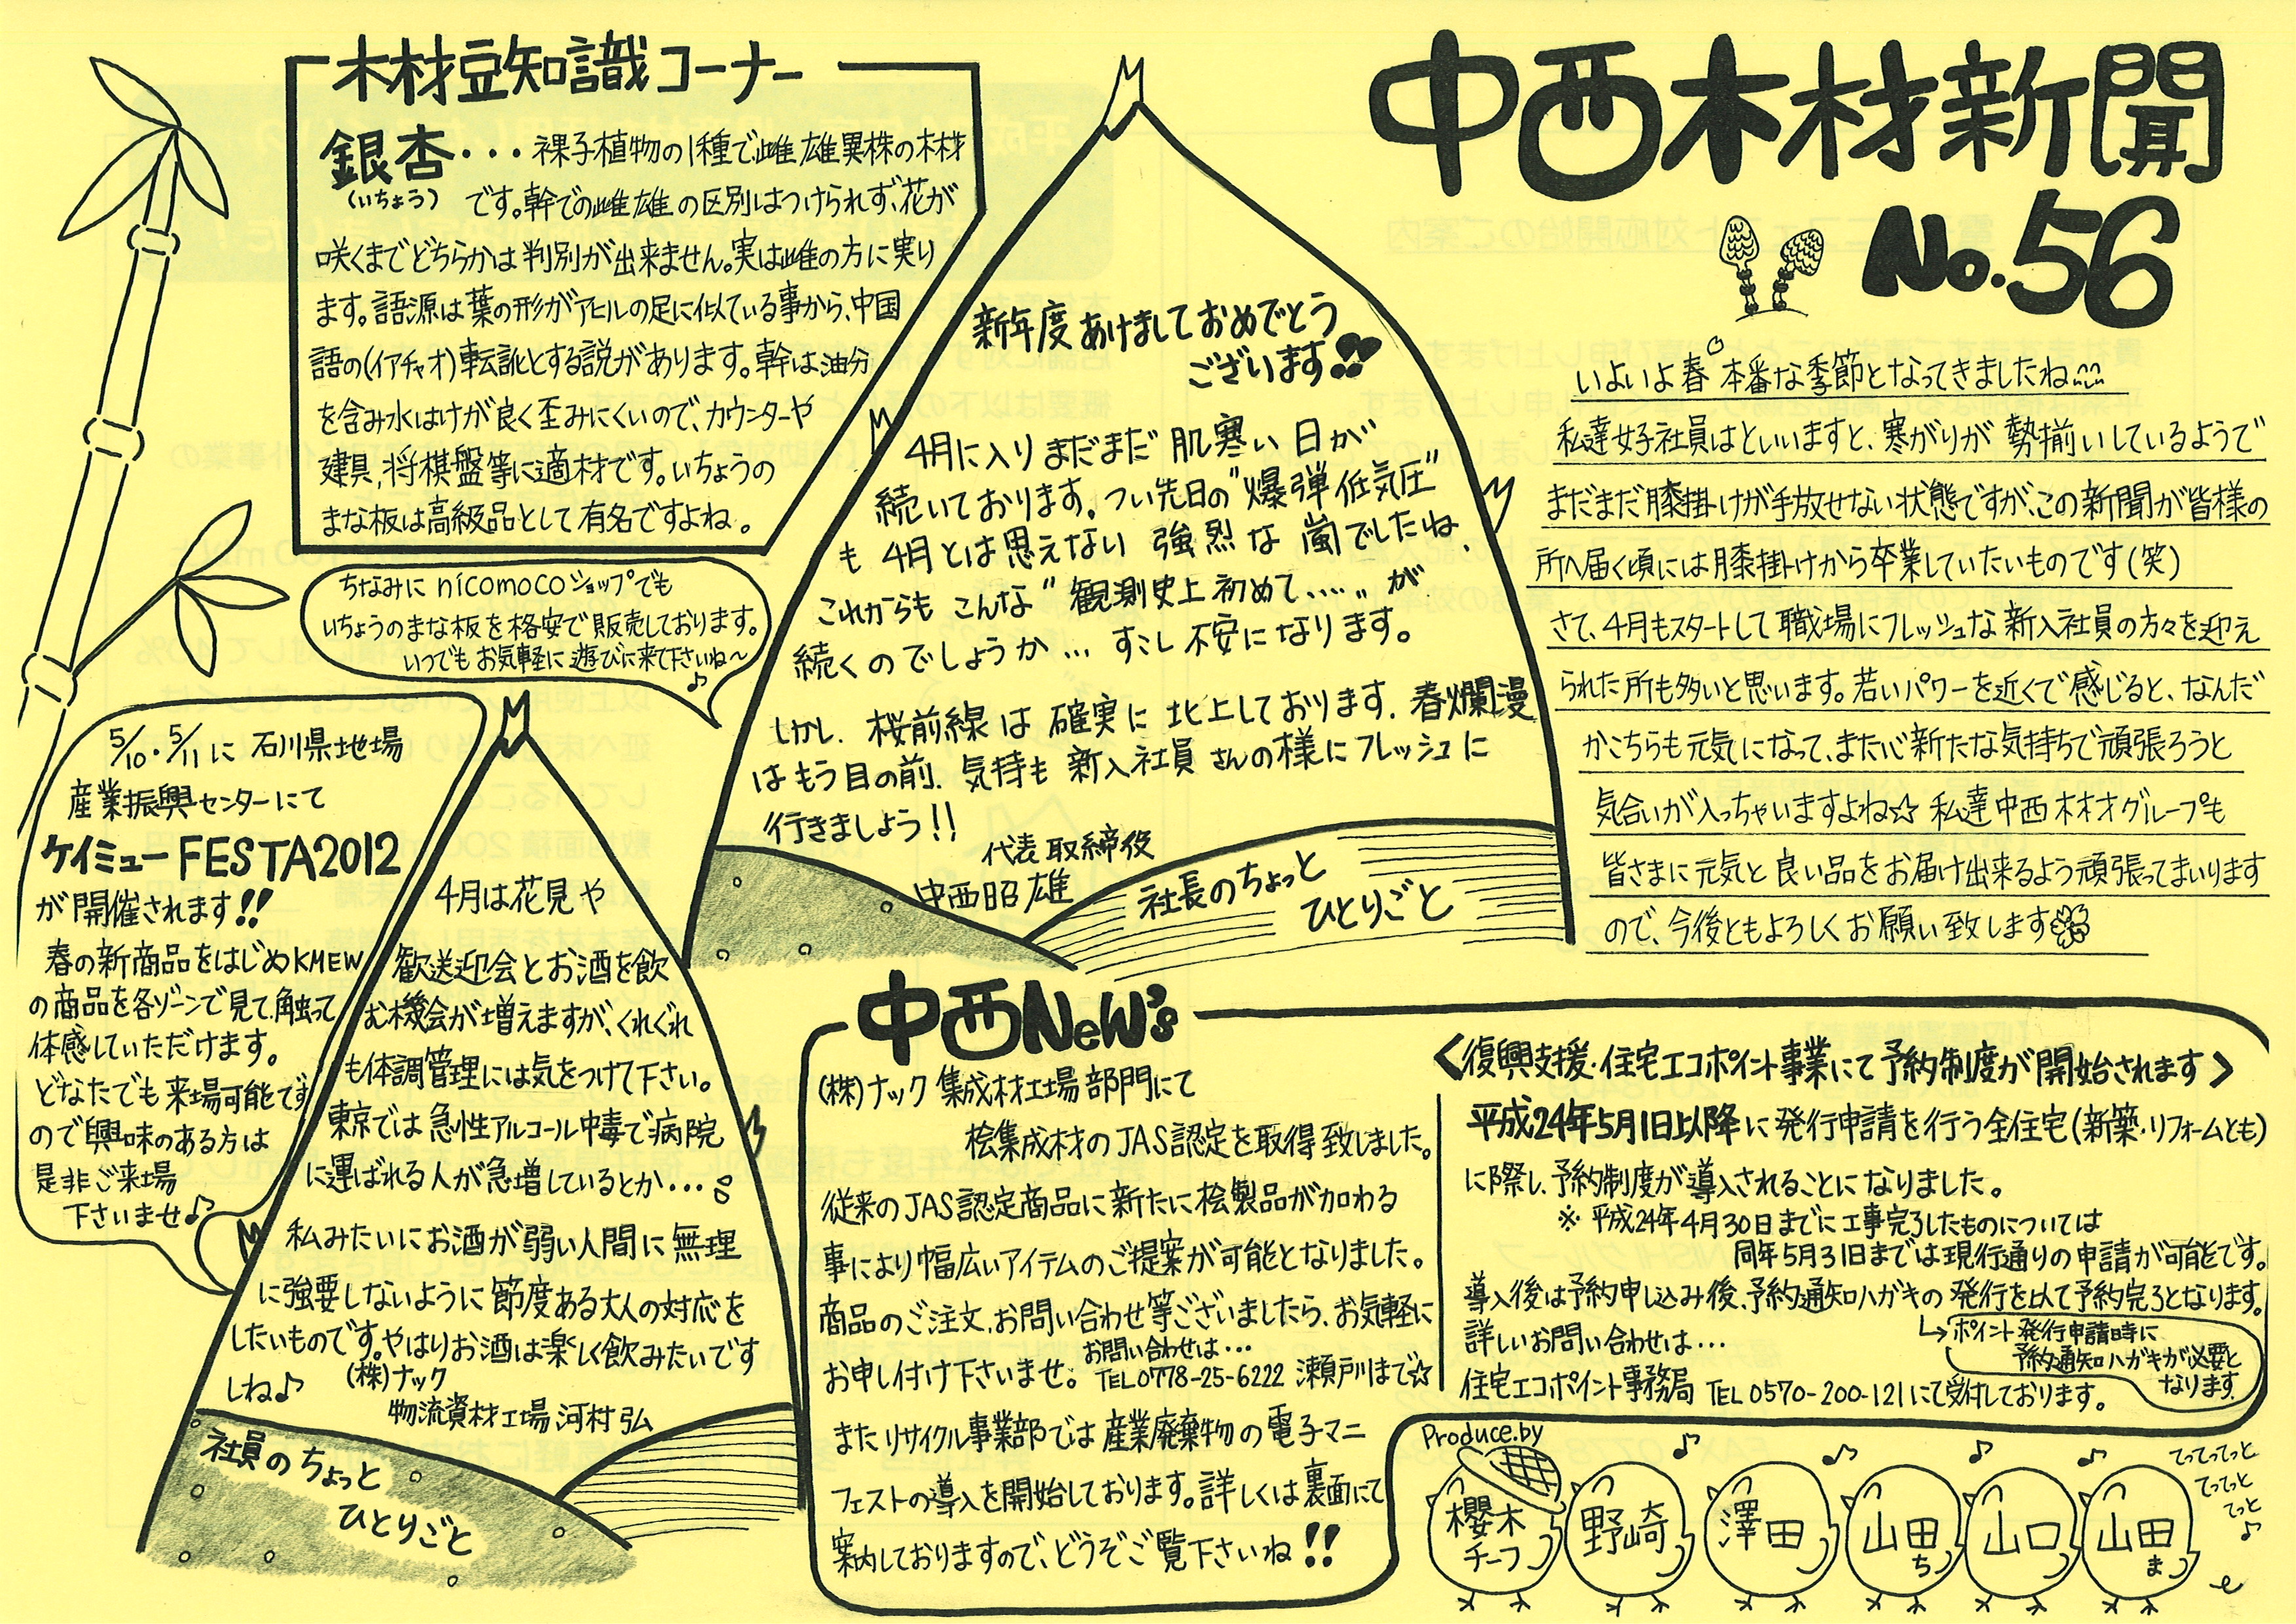 中西木材新聞
No.56
いよいよ春本番な季節となってきましたね
私達女子社員はといいますと、寒がりが勢揃いしているようで
まだまだ膝掛けが手放せない状態ですが、この新聞が皆様の
所へ届く頃には膝掛けから卒業していたいものです(笑)
さて、4月もスタートして職場にフレッシュな新入社員の方々を迎え
られた所も多いと思います。若いパワーを近くで感じると、なんだ
かこちらも元気になって、また心新たな気持ちで頑張ろうと
気合いが入っちゃいますよね☆ 私達中西木材グループも
皆さまに元気と良い品をお届け出来るよう頑張ってまいります
ので、今後ともよろしくお願い致します
新年度あけましておめでとう
ございます!!
4月に入りまだまだ肌寒い日が
続いております。つい先日の"爆弾低気圧"
も4月とは思えない強烈な嵐でしたね、
これからもこんな"観測史上初めて....."が
続くのでしょうか...すこし不安になります。
しかし、桜前線は確実に北上しております。春爛漫
はもう目の前、気持も新入社員さんの様にフレッシュに
行きましょう!!
代表取締役
中西昭雄
社長のちょっと
ひとりごと
木材豆知識コーナー
銀杏・・・裸子植物の1種で雌雄異株の木材
(いちょう) です。幹での雌雄の区別はつけられず、花が
咲くまでどちらかは判別が出来ません。実は雌の方に実り
ます。語源は葉の形がアヒルの足に似ている事から、中国
語の(イアチャオ)転訛とする説があります。幹は油分
を含み水はけが良く歪みにくいので、カウンターや
建具,将棋盤等に適材です。いちょうの
まな板は高級品として有名ですよね。
ちなみにnicomocoショップでも
いちょうのまな板を格安で販売しております。
いつでもお気軽に遊びに来て下さいね〜♪
5/10・5/11に 石川県地場
産業振興センターにて
ケイミューFESTA2012
が開催されます!!
春の新商品をはじめKMEW
の商品を各ゾーンで見て、触って
体感していただけます。
どなたでも来場可能です
ので興味のある方は
是非ご来場
下さいませ♪
4月は花見や
歓送迎会とお酒を飲
む機会が増えますが、くれぐれ
も体調管理には気をつけて下さい。
東京では急性アルコール中毒で病院
に運ばれる人が急増しているとか...
私みたいにお酒が弱い人間に無理
に強要しないように節度ある大人の対応を
したいものです。やはりお酒は楽しく飲みたいです
しね♪
(株)ナック
物流資材工場 河村弘
社員のちょっと
ひとりごと
中西NeW's
(株)ナック 集成材工場部門にて
桧集成材のJAS認定を取得致しました。
従来のJAS認定商品に新たに桧製品が加わる
事により幅広いアイテムのご提案が可能となりました。
商品のご注文、お問い合わせ等ございましたら、お気軽に
お申し付け下さいませ。
お問い合わせは...
TEL0778-25-6222 瀬戸川まで☆
またリサイクル事業部では産業廃棄物の電子マニ
フェストの導入を開始しております。詳しくは裏面にて
案内しておりますので、どうぞご覧下さいね!!
<復興支援・住宅エコポイント事業にて予約制度が開始されます>
平成24年5月1日以降に発行申請を行う全住宅(新築・リフォームとも)
に際し、予約制度が導入されることになりました。
※平成24年4月30日までに工事完了したものについては
同年5月31日までは現行通りの申請が可能です。
導入後は予約申し込み後、予約通知ハガキの発行を以て予約完了となります。
↳ポイント発行申請時に
予約通知ハガキが必要と
なります。
詳しいお問い合わせは...
住宅エコポイント事務局 TEL0570-200-121にて受付しております。
Produce.by
櫻木
チーフ
野崎
澤田
山田
ち
山口
山田
ま
てってってっと
てってっと
てっと
♪